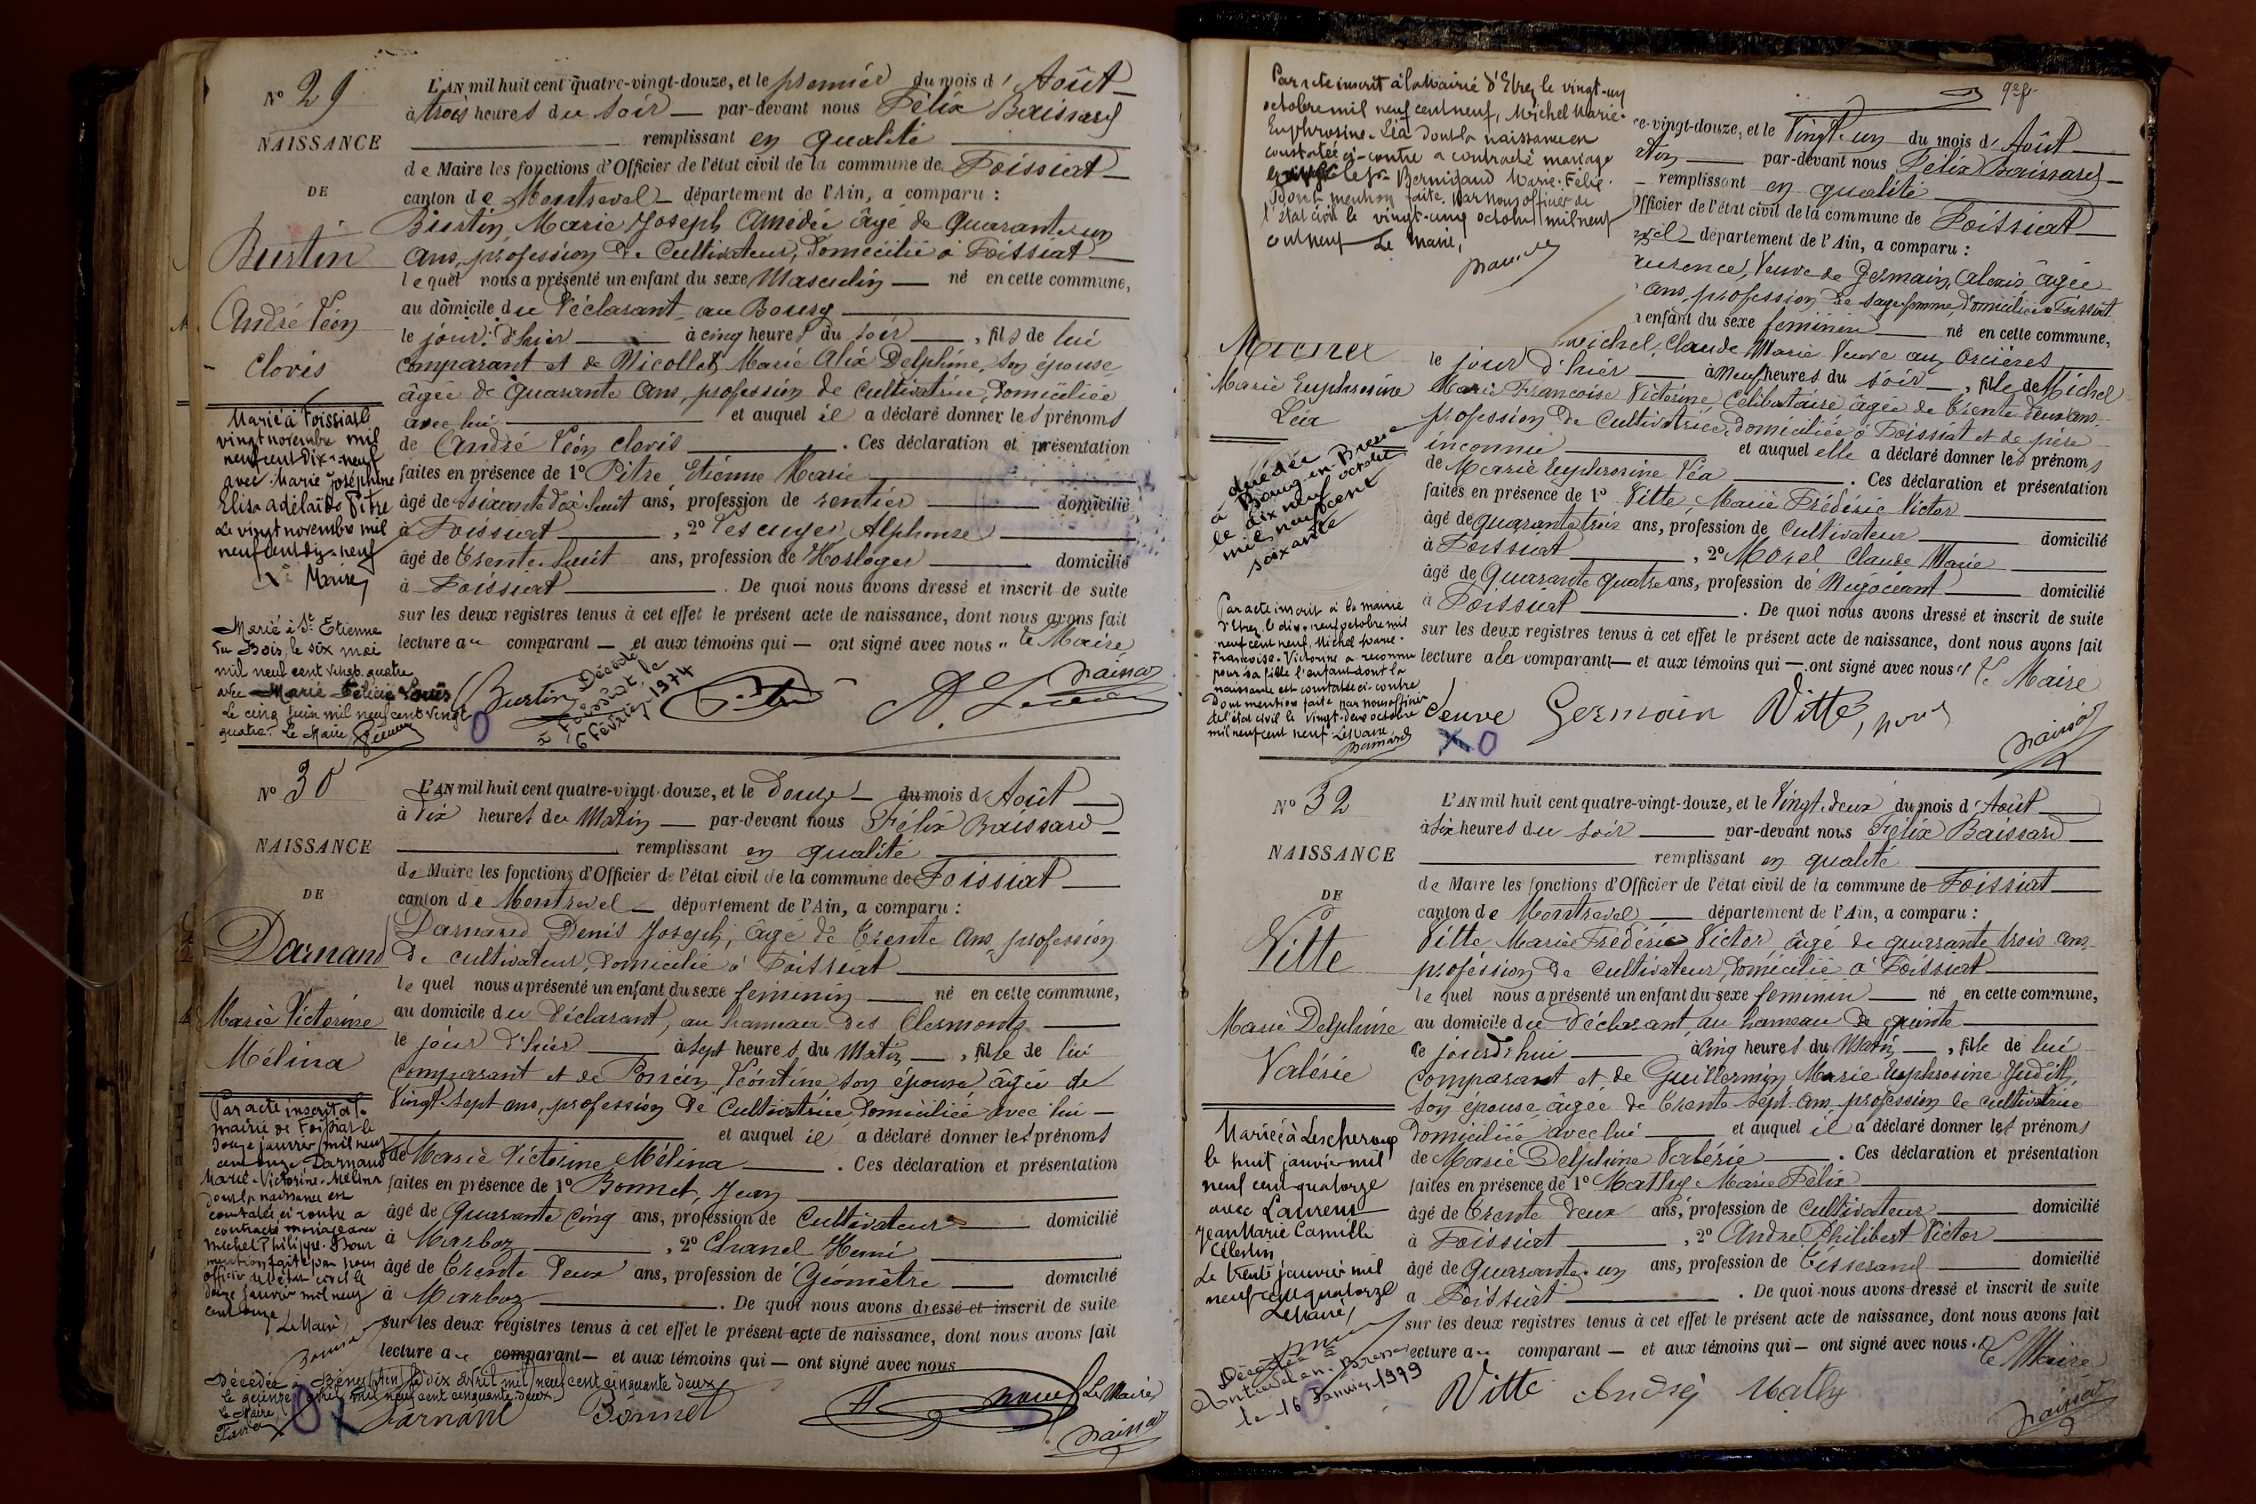 N° 29
NAISSANCE
DE
Burtin
André Léon
Clovis
Marié à Foissiat le
vingt novembre mil
neuf cent dix-neuf
avec Marie Joséphine
Elisa Adélaïde Pitre
Le vingt novembre mil
neuf cent dix-neuf
Le Maire,
Marié à St Etienne
du Bois, le six mai
mil neuf cent vingt quatre
avec Marie Félicie
Le cinq juin mil neuf cent vingt
quatre. Le Maire
L'AN mil huit cent quatre-vingt-douze, et le premier du mois d'Août
à trois heures du soir par-devant nous Félix Baissard
remplissant en qualité
de Maire les fonctions d'Officier de l'état civil de la commune de Foissiat
canton de Montrevel département de l'Ain, a comparu :
Burtin, Marie Joseph Amédée âgé de quarante un
ans, profession de cultivateur, domicilié à Foissiat
lequel nous a présenté un enfant du sexe Masculin né en cette commune,
au domicile du déclarant au Bourg
le jour d'hier à cinq heures du soir, fils de lui
comparant et de Nicollet, Marie Alix Delphine, son épouse
âgée de quarante ans, profession de cultivatrice, domiciliée
avec lui et auquel il a déclaré donner les prénoms
de André Léon Clovis. Ces déclaration et présentation
faites en présence de 1° Pitre, Etienne Marie
âgé de soixante dix huit ans, profession de rentier domicilié
à Foissiat, 2° Lescuyer, Alphonse
âgé de trente huit ans, profession de Horloger domicilié
à Foissiat. De quoi nous avons dressé et inscrit de suite
sur les deux registres tenus à cet effet le présent acte de naissance, dont nous avons fait
lecture au comparant et aux témoins qui ont signé avec nous. Le Maire
Burtin
Décédé
à Foissiat le
6 Février 1974
N° 30
NAISSANCE
DE
Darnand
Marie Victorine
Mélina
Par acte inscrit à la
mairie de Foissiat le
douze janvier mil neuf
cent onze Darnand
Marie-Victorine-Mélina
dont la naissance est
constatée ci-contre a
contracté mariage avec
Michel Philippe. Dont
mention faite par nous
officier de l'état civil le
douze janvier mil neuf
cent onze
Le Maire,
Décédée à Bény (Ain) le dix avril mil neuf cent cinquante deux
le quinze avril mil neuf cent cinquante deux.
Le Maire
L'AN mil huit cent quatre-vingt-douze, et le douze du mois d'Août
à dix heures du Matin par-devant nous Félix Baissard
remplissant en qualité
de Maire les fonctions d'Officier de l'état civil de la commune de Foissiat
canton de Montrevel département de l'Ain, a comparu :
Darnand Denis Joseph, âgé de trente ans, profession
de cultivateur, domicilié à Foissiat
lequel nous a présenté un enfant du sexe féminin né en cette commune,
au domicile du déclarant, au hameau des Clermonts
le jour d'hier à sept heures du Matin, fille de lui
comparant et de Poncin, Léontine son épouse âgée de
vingt sept ans, profession de cultivatrice domiciliée avec lui
et auquel il a déclaré donner les prénoms
de Marie Victorine Mélina. Ces déclaration et présentation
faites en présence de 1° Bonnet, Jean
âgé de quarante cinq ans, profession de cultivateur domicilié
à Marboz, 2° Chanel Henri
âgé de trente deux ans, profession de Géomètre domicilié
à Marboz. De quoi nous avons dressé et inscrit de suite
sur les deux registres tenus à cet effet le présent acte de naissance, dont nous avons fait
lecture au comparant et aux témoins qui ont signé avec nous
Le Maire
Darnand Bonnet
Par acte inscrit à la Mairie d'Etrez le vingt-un
octobre mil neuf cent neuf, Michel Marie-
Euphrosine-Léa dont la naissance est
constatée ci-contre a contracté mariage
avec le sr Bernigaud Marie-Félix.
Dont mention faite par nous officier de
l'état civil le vingt-cinq octobre mil neuf
cent neuf Le Maire,
Michel
Marie Euphrosine
Léa
Décédée
à Bourg-en-Bresse
le dix neuf octobre
mil neuf cent
soixante
Par acte inscrit à la mairie
d'Etrez le dix-neuf octobre mil
neuf cent neuf, Michel Marie-
Françoise-Victorine a reconnu
pour sa fille l'enfant dont la
naissance est constatée ci-contre
Dont mention faite par nous officier
de l'état civil le vingt-deux octobre
mil neuf cent neuf. Le Maire
e-vingt-douze, et le vingt-un du mois d'Août
par-devant nous Félix Baissard
remplissant en qualité
Officier de l'état civil de la commune de Foissiat
département de l'Ain, a comparu :
veuve de Germain, Alexis âgée
ans, profession de sage femme, domiciliée à Foissiat
enfant du sexe féminin né en cette commune,
Michel, Claude Marie veuve aux Orcières
le jour d'hier à neuf heures du soir, fille de Michel
Marie Françoise Victorine, célibataire âgée de trente deux ans
profession de cultivatrice, domiciliée à Foissiat et de père
inconnu et auquel elle a déclaré donner les prénoms
de Marie Euphrosine Léa. Ces déclaration et présentation
faites en présence de 1° Vitte, Marie Frédéric Victor
âgé de quarante trois ans, profession de cultivateur domicilié
à Foissiat, 2° Morel Claude Marie
âgé de quarante quatre ans, profession de Négociant domicilié
à Foissiat. De quoi nous avons dressé et inscrit de suite
sur les deux registres tenus à cet effet le présent acte de naissance, dont nous avons fait
lecture à la comparante et aux témoins qui ont signé avec nous. Le Maire
veuve Germain Vitte
N° 32
NAISSANCE
DE
Vitte
Marie Delphine
Valérie
Mariée à Lescheroux
le huit janvier mil
neuf cent quatorze
avec Laurent
Jean Marie Camille
Célestin
Le trente janvier mil
neuf cent quatorze
Le Maire,
Décédée à
Montrevel-en-Bresse
le 16 Janvier 1979
L'AN mil huit cent quatre-vingt-douze, et le vingt-deux du mois d'Août
à six heures du soir par-devant nous Félix Baissard
remplissant en qualité
de Maire les fonctions d'Officier de l'état civil de la commune de Foissiat
canton de Montrevel département de l'Ain, a comparu :
Vitte Marie Frédéric Victor, âgé de quarante trois ans
profession de cultivateur, domicilié à Foissiat
lequel nous a présenté un enfant du sexe féminin né en cette commune,
au domicile du déclarant au hameau de
ce jourd'hui à cinq heures du Matin, fille de lui
comparant et de Guillermin, Marie Euphrosine Judith,
son épouse, âgée de trente sept ans, profession de cultivatrice
domiciliée avec lui et auquel il a déclaré donner les prénoms
de Marie Delphine Valérie. Ces déclaration et présentation
faites en présence de 1° Mathy Marie Félix
âgé de trente deux ans, profession de cultivateur domicilié
à Foissiat, 2° André Philibert Victor
âgé de quarante-un ans, profession de tisserand domicilié
à Foissiat. De quoi nous avons dressé et inscrit de suite
sur les deux registres tenus à cet effet le présent acte de naissance, dont nous avons fait
lecture au comparant et aux témoins qui ont signé avec nous. Le Maire
Vitte André Mathy